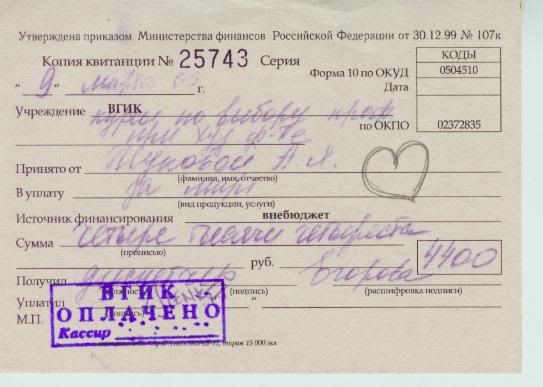 Утверждена приказом Министерства финансов Российской Федерации от 30.12.99 № 107к
Копия квитанции № 25743 Серия
КОДЫ
Форма 10 по ОКУД 0504510
" 9 " марта г.
Дата
Учреждение ВГИК
курсы по выбору проф
по ОКПО 02372835
при худ. ф-те
Принято от
(фамилия, имя, отчество)
В уплату за март
(вид продукции, услуги)
Источник финансирования внебюджет
Сумма четыре тысячи четыреста
(прописью)
руб. 4400
Получил Егорова
(подпись) (расшифровка подписи)
Уплатил
М.П.
ВГИК
ОПЛАЧЕНО
Кассир
тираж 15 000 экз.